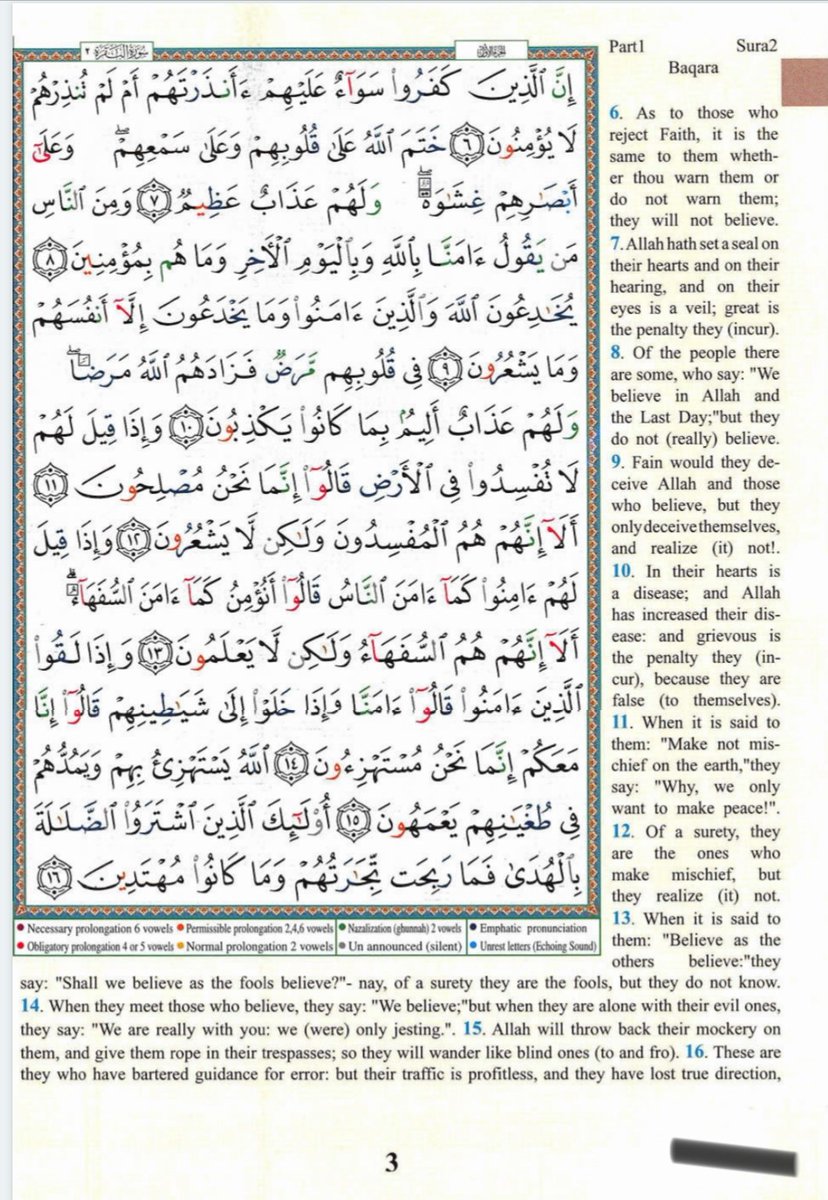 سورة البقرة ٢
الجزء الأول
Part1 Sura2
Baqara
إِنَّ ٱلَّذِينَ كَفَرُوا۟ سَوَآءٌ عَلَيْهِمْ ءَأَنذَرْتَهُمْ أَمْ لَمْ تُنذِرْهُمْ
لَا يُؤْمِنُونَ ٦ خَتَمَ ٱللَّهُ عَلَىٰ قُلُوبِهِمْ وَعَلَىٰ سَمْعِهِمْ ۖ وَعَلَىٰٓ
أَبْصَٰرِهِمْ غِشَٰوَةٌ ۖ وَلَهُمْ عَذَابٌ عَظِيمٌ ٧ وَمِنَ ٱلنَّاسِ
مَن يَقُولُ ءَامَنَّا بِٱللَّهِ وَبِٱلْيَوْمِ ٱلْأَخِرِ وَمَا هُم بِمُؤْمِنِينَ ٨
يُخَٰدِعُونَ ٱللَّهَ وَٱلَّذِينَ ءَامَنُوا۟ وَمَا يَخْدَعُونَ إِلَّآ أَنفُسَهُمْ
وَمَا يَشْعُرُونَ ٩ فِى قُلُوبِهِم مَّرَضٌ فَزَادَهُمُ ٱللَّهُ مَرَضًا ۖ
وَلَهُمْ عَذَابٌ أَلِيمٌۢ بِمَا كَانُوا۟ يَكْذِبُونَ ١٠ وَإِذَا قِيلَ لَهُمْ
لَا تُفْسِدُوا۟ فِى ٱلْأَرْضِ قَالُوٓا۟ إِنَّمَا نَحْنُ مُصْلِحُونَ ١١
أَلَآ إِنَّهُمْ هُمُ ٱلْمُفْسِدُونَ وَلَٰكِن لَّا يَشْعُرُونَ ١٢ وَإِذَا قِيلَ
لَهُمْ ءَامِنُوا۟ كَمَآ ءَامَنَ ٱلنَّاسُ قَالُوٓا۟ أَنُؤْمِنُ كَمَآ ءَامَنَ ٱلسُّفَهَآءُ ۗ
أَلَآ إِنَّهُمْ هُمُ ٱلسُّفَهَآءُ وَلَٰكِن لَّا يَعْلَمُونَ ١٣ وَإِذَا لَقُوا۟
ٱلَّذِينَ ءَامَنُوا۟ قَالُوٓا۟ ءَامَنَّا وَإِذَا خَلَوْا۟ إِلَىٰ شَيَٰطِينِهِمْ قَالُوٓا۟ إِنَّا
مَعَكُمْ إِنَّمَا نَحْنُ مُسْتَهْزِءُونَ ١٤ ٱللَّهُ يَسْتَهْزِئُ بِهِمْ وَيَمُدُّهُمْ
فِى طُغْيَٰنِهِمْ يَعْمَهُونَ ١٥ أُو۟لَٰٓئِكَ ٱلَّذِينَ ٱشْتَرَوُا۟ ٱلضَّلَٰلَةَ
بِٱلْهُدَىٰ فَمَا رَبِحَت تِّجَٰرَتُهُمْ وَمَا كَانُوا۟ مُهْتَدِينَ ١٦
• Necessary prolongation 6 vowels • Permissible prolongation 2,4,6 vowels • Nazalization (ghunnah) 2 vowels • Emphatic pronunciation
• Obligatory prolongation 4 or 5 vowels • Normal prolongation 2 vowels • Un announced (silent) • Unrest letters (Echoing Sound)
6. As to those who
reject Faith, it is the
same to them wheth-
er thou warn them or
do not warn them;
they will not believe.
7. Allah hath set a seal on
their hearts and on their
hearing, and on their
eyes is a veil; great is
the penalty they (incur).
8. Of the people there
are some, who say: "We
believe in Allah and
the Last Day;"but they
do not (really) believe.
9. Fain would they de-
ceive Allah and those
who believe, but they
only deceive themselves,
and realize (it) not!.
10. In their hearts is
a disease; and Allah
has increased their dis-
ease: and grievous is
the penalty they (in-
cur), because they are
false (to themselves).
11. When it is said to
them: "Make not mis-
chief on the earth,"they
say: "Why, we only
want to make peace!".
12. Of a surety, they
are the ones who
make mischief, but
they realize (it) not.
13. When it is said to
them: "Believe as the
others believe:"they
say: "Shall we believe as the fools believe?"- nay, of a surety they are the fools, but they do not know.
14. When they meet those who believe, they say: "We believe;"but when they are alone with their evil ones,
they say: "We are really with you: we (were) only jesting.". 15. Allah will throw back their mockery on
them, and give them rope in their trespasses; so they will wander like blind ones (to and fro). 16. These are
they who have bartered guidance for error: but their traffic is profitless, and they have lost true direction,
3